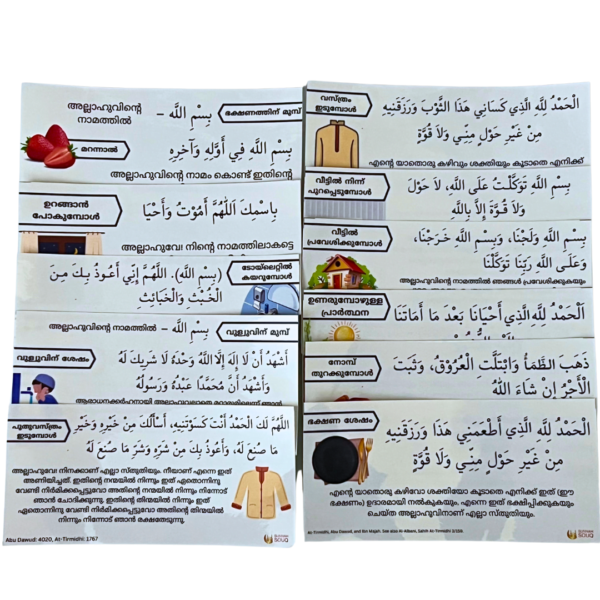 ഭക്ഷണത്തിന് മുമ്പ്
بِسْمِ اللَّه – അല്ലാഹുവിന്റെ
നാമത്തിൽ
മറന്നാൽ
بِسْمِ اللَّهِ فِي أَوَّلِهِ وَآخِرِهِ
അല്ലാഹുവിന്റെ നാമം കൊണ്ട് ഇതിന്റെ
ഉറങ്ങാൻ
പോകുമ്പോൾ
بِاسْمِكَ اللَّهُمَّ أَمُوْتُ وَأَحْيَا
അല്ലാഹുവേ! നിന്റെ നാമത്തിലാകട്ടെ
ടോയ്‌ലെറ്റിൽ
കയറുമ്പോൾ
(بِسْمِ اللَّهِ). اللَّهُمَّ إِنِّي أَعُوذُ بِكَ مِنَ
الْخُبْثِ وَالْخَبَائِثِ
വുളൂവിന് മുമ്പ്
بِسْمِ اللَّه – അല്ലാഹുവിന്റെ നാമത്തിൽ
വുളൂവിന് ശേഷം
أَشْهَدُ أَنْ لَا إِلَهَ إِلَّا اللَّهُ وَحْدَهُ لَا شَرِيكَ لَهُ
وَأَشْهَدُ أَنَّ مُحَمَّدًا عَبْدُهُ وَرَسُولُهُ
പുതുവസ്ത്രം
ഇടുമ്പോൾ
اللَّهُمَّ لَكَ الْحَمْدُ أَنْتَ كَسَوْتَنِيهِ، أَسْأَلُكَ مِنْ خَيْرِهِ وَخَيْرِ
مَا صُنِعَ لَهُ، وَأَعُوذُ بِكَ مِنْ شَرِّهِ وَشَرِّ مَا صُنِعَ لَهُ
അല്ലാഹുവേ നിനക്കാണ് എല്ലാ സ്തുതിയും. നീയാണ് എന്നെ ഇത്
അണിയിച്ചത്. ഇതിന്റെ നന്മയിൽ നിന്നും ഇത് ഏതൊന്നിനു
വേണ്ടി നിർമിക്കപ്പെട്ടുവോ അതിന്റെ നന്മയിൽ നിന്നും നിന്നോട്
ഞാൻ ചോദിക്കുന്നു. ഇതിന്റെ തിന്മയിൽ നിന്നും ഇത്
ഏതൊന്നിനു വേണ്ടി നിർമിക്കപ്പെട്ടുവോ അതിന്റെ തിന്മയിൽ
നിന്നും നിന്നോട് ഞാൻ രക്ഷതേടുന്നു.
Abu Dawud: 4020, At-Tirmidhi: 1767
വസ്ത്രം
ഇടുമ്പോൾ
الْحَمْدُ لِلَّهِ الَّذِي كَسَانِي هَذَا الثَّوْبَ وَرَزَقَنِيهِ
مِنْ غَيْرِ حَوْلٍ مِنِّي وَلَا قُوَّةٍ
എന്റെ യാതൊരു കഴിവും ശക്തിയും കൂടാതെ എനിക്ക്
വീട്ടിൽ നിന്ന്
പുറപ്പെടുമ്പോൾ
بِسْمِ اللَّهِ تَوَكَّلْتُ عَلَى اللَّهِ، لَا حَوْلَ
وَلَا قُوَّةَ إِلَّا بِاللَّهِ
വീട്ടിൽ
പ്രവേശിക്കുമ്പോൾ
بِسْمِ اللَّهِ وَلَجْنَا، وَبِسْمِ اللَّهِ خَرَجْنَا،
وَعَلَى اللَّهِ رَبِّنَا تَوَكَّلْنَا
അല്ലാഹുവിന്റെ നാമത്തിൽ ഞങ്ങൾ പ്രവേശിക്കുകയും
ഉണരുമ്പോഴുള്ള
പ്രാർത്ഥന
اَلْحَمْدُ لِلَّهِ الَّذِي أَحْيَانَا بَعْدَ مَا أَمَاتَنَا
നോമ്പ്
തുറക്കുമ്പോൾ
ذَهَبَ الظَّمَأُ وَابْتَلَّتِ الْعُرُوْقُ، وَثَبَتَ
الْأَجْرُ إِنْ شَاءَ اللهُ
ഭക്ഷണ ശേഷം
الْحَمْدُ لِلَّهِ الَّذِي أَطْعَمَنِي هَذَا وَرَزَقَنِيهِ
مِنْ غَيْرِ حَوْلٍ مِنِّي وَلَا قُوَّةٍ
എന്റെ യാതൊരു കഴിവോ ശക്തിയോ കൂടാതെ എനിക്ക് ഇത് (ഈ
ഭക്ഷണം) ഉദാരമായി നൽകുകയും. എന്നെ ഇത് ഭക്ഷിപ്പിക്കുകയും
ചെയ്ത അല്ലാഹുവിനാണ് എല്ലാ സ്തുതിയും.
At-Tirmidhi, Abu Dawud, and Ibn Majah. See also Al-Albani, Sahih At-Tirmidhi 3/159.
SOUQ